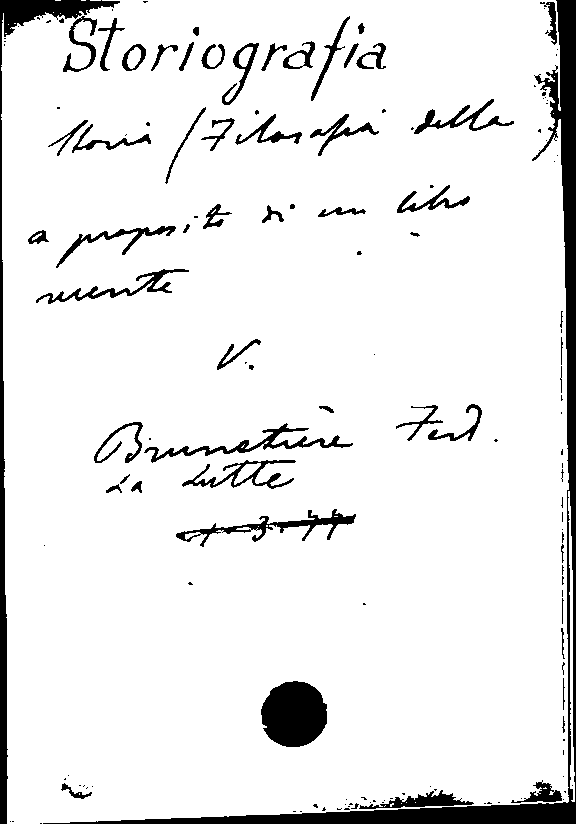 Storiografia
Storia (Filosofia della)
a proposito di un libro
recente
V.
Brunetière Ferd.
La Lutte